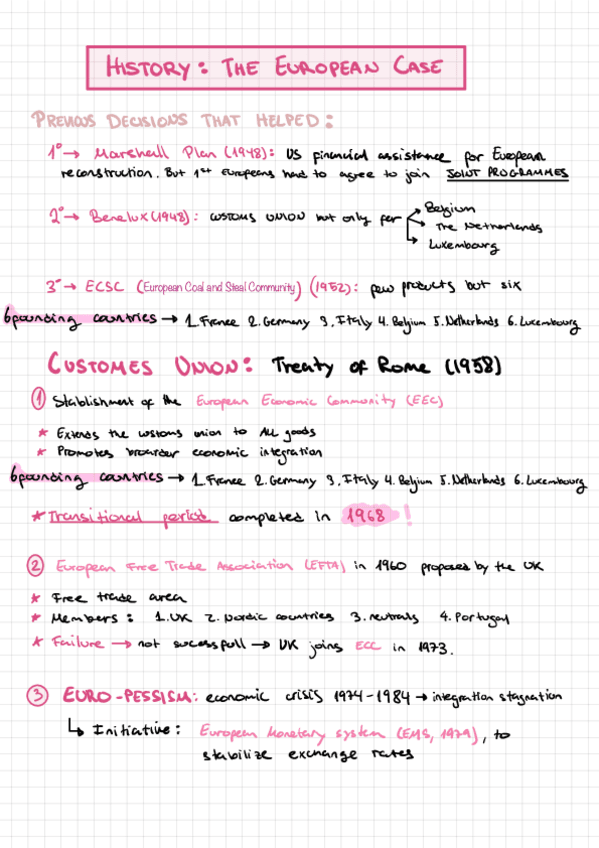 HISTORY: THE EUROPEAN CASE
PREVIOUS DECISIONS THAT HELPED:
1º → Marshall Plan (1948): US financial assistance for European
reconstruction. But 1st Europeans had to agree to join JOINT PROGRAMMES
2º → Benelux (1948): customs union but only for
Belgium
The Netherlands
Luxembourg
3º → ECSC (European Coal and Steal Community) (1952): few products but six
6 founding countries → 1. France 2. Germany 3. Italy 4. Belgium 5. Netherlands 6. Luxembourg
CUSTOMES UNION: Treaty of Rome (1958)
① Stablishment of the European Economic Community (EEC)
* Extends the customs union to ALL goods
* Promotes broarder economic integration
6 founding countries → 1. France 2. Germany 3. Italy 4. Belgium 5. Netherlands 6. Luxembourg
* Transitional period completed in 1968 !
② European Free Trade Association (EFTA) in 1960 proposed by the UK
* Free trade area
* Members: 1. UK 2. Nordic countries 3. neutrals 4. Portugal
* Failure → not sucessfull → UK joins ECC in 1973.
③ EURO-PESSISM: economic crisis 1974-1984 → integration stagnation
↳ Initiative: European Monetary system (EMS, 1979), to
stabilize exchange rates